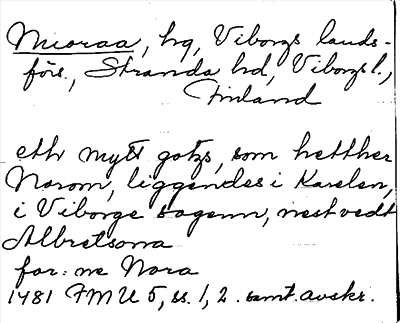 Mioraa, hg, Viborgs lands-
förs., Stranda hd, Viborgs l.,
Finland
eth mytt gotzs, som hetther
Norom, liggendes i Karelen,
i Viborgs sogenn, nest vedt
Albretsona
for: ne Nora
1481 FMU 5, ss. 1, 2. samt. avskr.